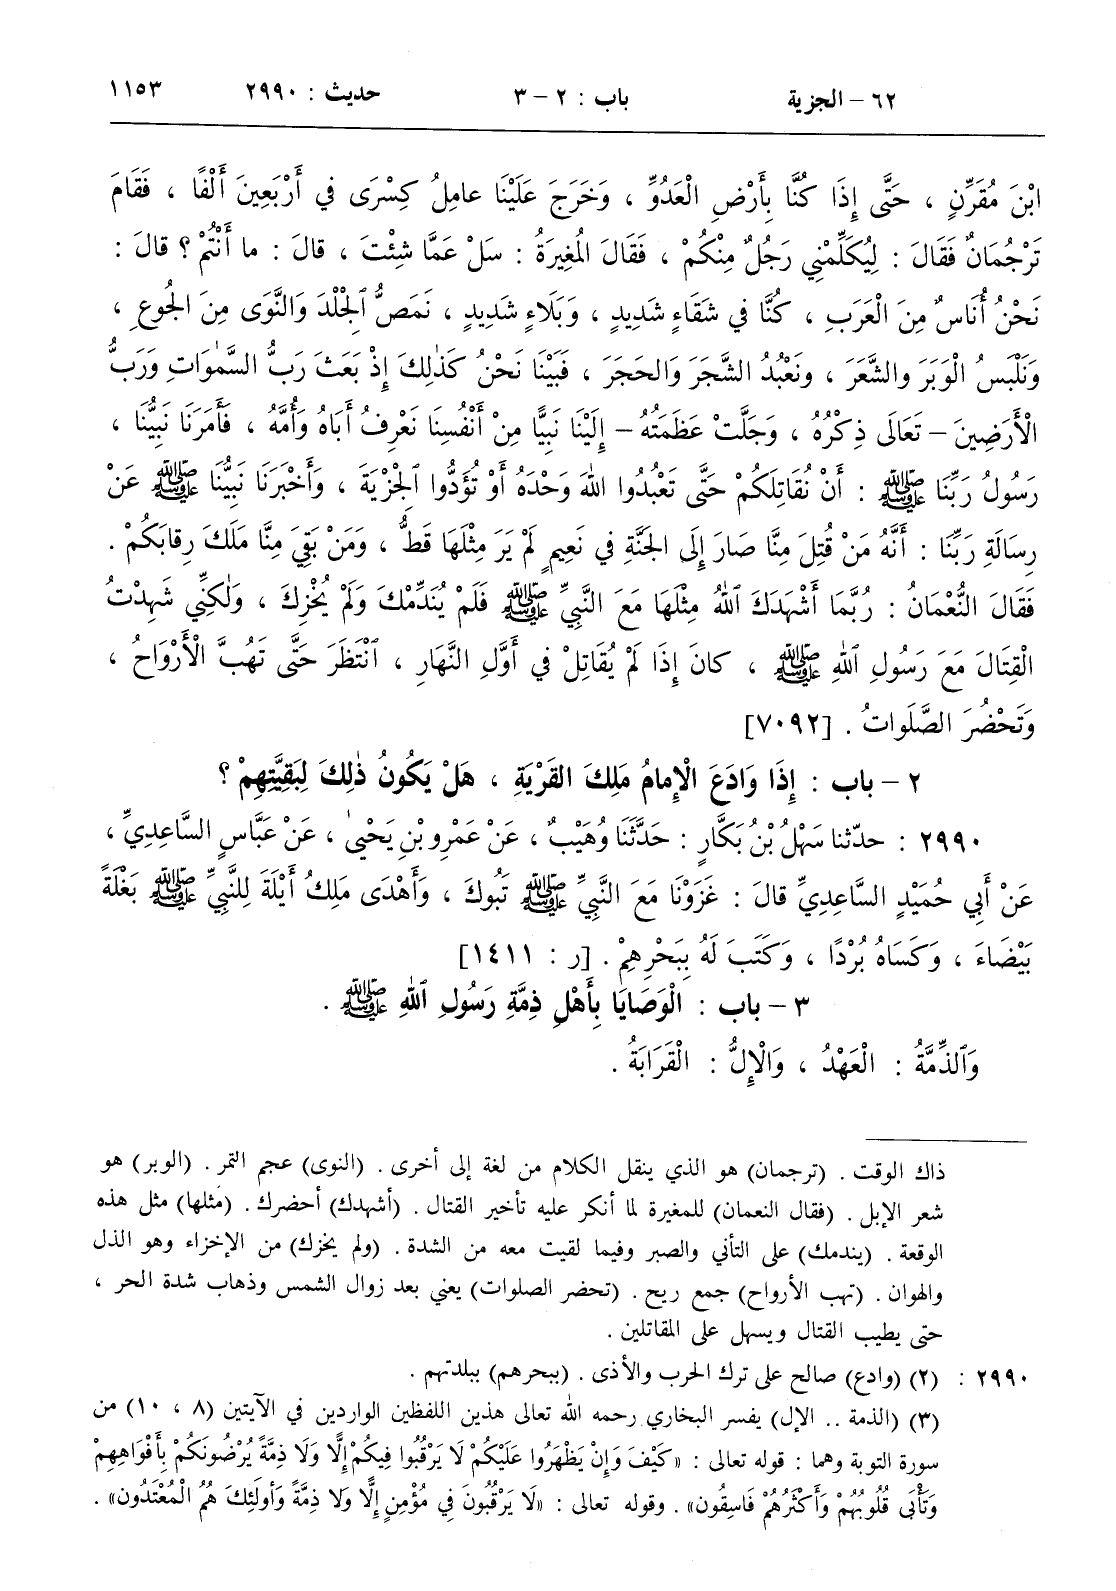 ٦٢ – الجزية باب : ٢ – ٣ حديث : ٢٩٩٠ ١١٥٣
ابْنَ مُقَرِّنٍ ، حَتَّى إِذَا كُنَّا بِأَرْضِ الْعَدُوِّ ، وَخَرَجَ عَلَيْنَا عامِلُ كِسْرَى في أَرْبَعِينَ أَلْفًا ، فَقَامَ
تَرْجُمَانٌ فَقَالَ : لِيُكَلِّمْنِي رَجُلٌ مِنْكُمْ ، فَقَالَ المُغِيرَةُ : سَلْ عَمَّا شِئْتَ ، قالَ : ما أَنْتُمْ ؟ قالَ :
نَحْنُ أُنَاسٌ مِنَ الْعَرَبِ ، كُنَّا في شَقَاءٍ شَدِيدٍ ، وَبَلَاءٍ شَدِيدٍ ، نَمَصُّ ٱلْجِلْدَ وَالنَّوَى مِنَ الجُوعِ ،
وَنَلْبَسُ الْوَبَرَ والشَّعَرَ ، ونَعْبُدُ الشَّجَرَ وَالحَجَرَ ، فَبَيْنَا نَحْنُ كَذٰلِكَ إِذْ بَعَثَ رَبُّ السَّمٰوَاتِ وَرَبُّ
الْأَرَضِينَ – تَعَالَى ذِكْرُهُ ، وَجَلَّتْ عَظَمَتُهُ – إِلَيْنَا نَبِيًّا مِنْ أَنْفُسِنَا نَعْرِفُ أَبَاهُ وَأُمَّهُ ، فَأَمَرَنَا نَبِيُّنَا ،
رَسُولُ رَبِّنَا ﷺ : أَنْ نُقَاتِلَكُمْ حَتَّى تَعْبُدُوا اللهَ وَحْدَهُ أَوْ تُؤَدُّوا ٱلْجِزْيَةَ ، وَأَخْبَرَنَا نَبِيُّنَا ﷺ عَنْ
رِسَالَةِ رَبِّنَا : أَنَّهُ مَنْ قُتِلَ مِنَّا صَارَ إِلَى الجَنَّةِ في نَعِيمٍ لَمْ يَرَ مِثْلَهَا قَطُّ ، وَمَنْ بَقِيَ مِنَّا مَلَكَ رِقابَكُمْ .
فَقَالَ النُّعْمَانُ : رُبَّمَا أَشْهَدَكَ ٱللهُ مِثْلَهَا مَعَ النَّبِيِّ ﷺ فَلَمْ يُنَدِّمْكَ وَلَمْ يُخْزِكَ ، وَلٰكِنِّي شَهِدْتُ
الْقِتَالَ مَعَ رَسُولِ ٱللهِ ﷺ ، كانَ إِذَا لَمْ يُقَاتِلْ في أَوَّلِ النَّهَارِ ، ٱنْتَظَرَ حَتَّى تَهُبَّ الْأَرْوَاحُ ،
وَتَحْضُرَ الصَّلَوَاتُ . [٧٠٩٢]
٢ – باب : إِذَا وَادَعَ الْإِمامُ مَلِكَ القَرْيَةِ ، هَلْ يَكُونُ ذٰلِكَ لِبَقِيَّتِهِمْ ؟
٢٩٩٠ : حدّثنا سَهْلُ بْنُ بَكَّارٍ : حَدَّثَنَا وُهَيْبٌ ، عَنْ عَمْرِو بْنِ يَحْيىٰ ، عَنْ عَبَّاسٍ السَّاعِدِيِّ ،
عَنْ أَبِي حُمَيْدٍ السَّاعِدِيِّ قالَ : غَزَوْنَا مَعَ النَّبِيِّ ﷺ تَبُوكَ ، وَأَهْدَى مَلِكُ أَيْلَةَ لِلنَّبِيِّ ﷺ بَغْلَةً
بَيْضَاءَ ، وَكَسَاهُ بُرْدًا ، وَكَتَبَ لَهُ بِبَحْرِهِمْ . [ر : ١٤١١]
٣ – باب : الْوَصَايَا بِأَهْلِ ذِمَّةِ رَسُولِ ٱللهِ ﷺ .
وَٱلذِّمَّةُ : الْعَهْدُ ، وَالْإِلُّ : الْقَرَابَةُ .
ذاك الوقت . (ترجمان) هو الذي ينقل الكلام من لغة إلى أخرى . (النوى) عجم التمر . (الوبر) هو
شعر الإبل . (فقال النعمان) للمغيرة لما أنكر عليه تأخير القتال . (أشهدك) أحضرك . (مثلها) مثل هذه
الوقعة . (يندمك) على التأني والصبر وفيما لقيت معه من الشدة . (ولم يخزك) من الإخزاء وهو الذل
والهوان . (تهب الأرواح) جمع ريح . (تحضر الصلوات) يعني بعد زوال الشمس وذهاب شدة الحر ،
حتى يطيب القتال ويسهل على المقاتلين .
٢٩٩٠ : (٢) (وادع) صالح على ترك الحرب والأذى . (ببحرهم) ببلدتهم .
(٣) (الذمة .. الإل) يفسر البخاري رحمه الله تعالى هذين اللفظين الواردين في الآيتين (٨ ، ١٠) من
سورة التوبة وهما : قوله تعالى : «كَيْفَ وَإِنْ يَظْهَرُوا عَلَيْكُمْ لَا يَرْقُبُوا فِيكُمْ إِلًّا وَلَا ذِمَّةً يُرْضُونَكُمْ بِأَفْوَاهِهِمْ
وَتَأْبَى قُلُوبُهُمْ وَأَكْثَرُهُمْ فَاسِقُون» . وقوله تعالى : «لَا يَرْقُبُونَ فِي مُؤْمِنٍ إِلًّا وَلَا ذِمَّةً وَأولَئِكَ هُمُ الْمُعْتَدُون» .